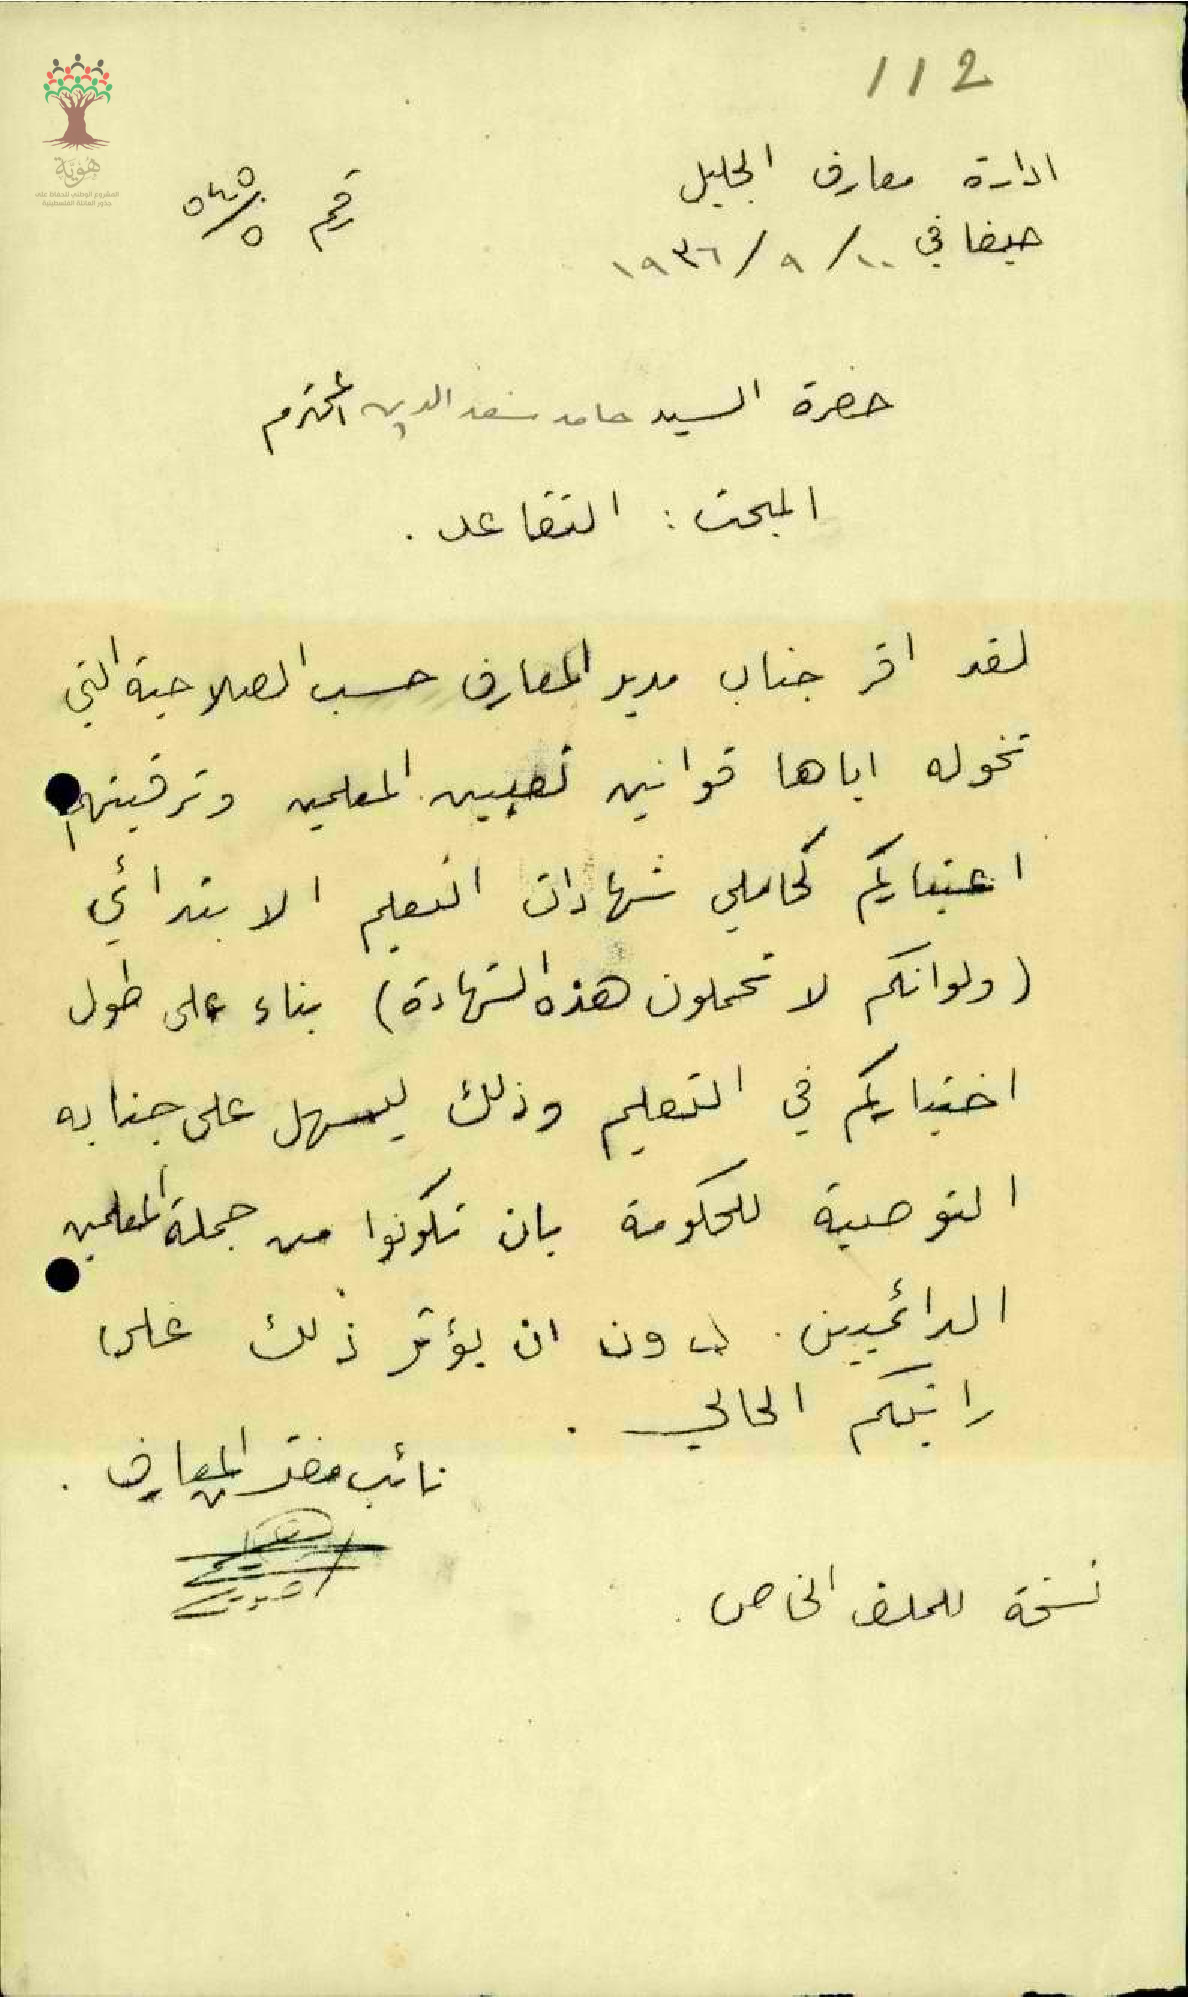 112
هُوِيَّة
المشروع الوطني للحفاظ على
جذور العائلة الفلسطينية
ادارة معارف الجليل
حيفا في ١٠/ ٩/ ١٩٣٦
رقم
حضرة السيد حامد سعد الدين المحترم
المبحث : التقاعد .
لقد اقر جناب مدير المعارف حسب الصلاحية التي
تخوله اياها قوانين تعيين المعلمين وترقيتهم
اعتباركم كحاملي شهادات التعليم الابتدائي
(ولو انكم لا تحملون هذه الشهادة) بناء على طول
اختباركم في التعليم وذلك ليسهل على جنابه
التوصية للحكومة بان تكونوا من جملة المعلمين
الدائميين . بدون ان يؤثر ذلك على
راتبكم الحالي .
نائب مفتش المعارف .
نسخة للملف الخاص .